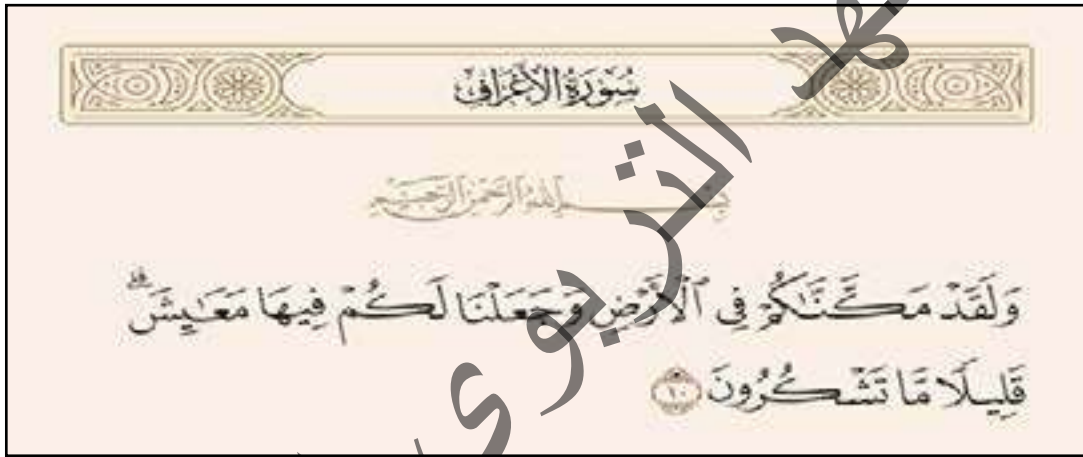 سُورَةُ الأَعْرَافِ
بِسْمِ اللَّهِ الرَّحْمَٰنِ الرَّحِيمِ
وَلَقَدْ مَكَّنَّٰكُمْ فِى ٱلْأَرْضِ وَجَعَلْنَا لَكُمْ فِيهَا مَعَٰيِشَ ۗ
قَلِيلًا مَّا تَشْكُرُونَ ١٠
التربوي